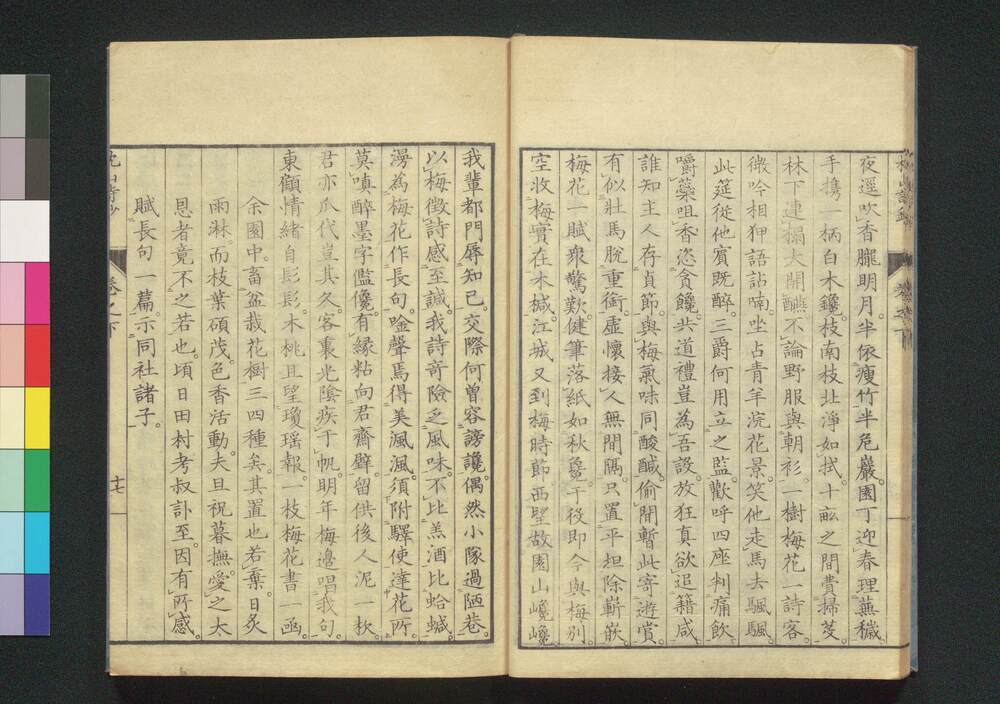 夜遥吹香朧明月半依瘦竹半危巖園丁迎春理蕪穢
手携一柄白木鑱枝南枝北淨如拭十畝之間費掃芟
林下連榻大開醼不論野服與朝衫一樹梅花一詩客
微吟相狎語詀喃坐占青羊浣花景笑他走馬去颿颿
此筵從他賓既醉三爵何用立之監歡呼四座判痛飲
嚼蘂咀香恣貪饞共道禮豈為吾設放狂真欲追籍咸
誰知主人存貞節與梅氣味同酸鹹偷閒暫此寄遊賞
有似壯馬脫重銜虛懷接人無間隔只置平坦除嶄嵌
梅花一賦衆驚歎健筆落紙如秋毚于役即今與梅別
空收梅實在木椷江城又到梅時節西望故園山巉巉
我輩都門辱知己交際何曾容謗讒偶然小隊過陋巷
以梅徵詩感至諴我詩奇險乏風味不比羔酒比蛤蝛
漫為梅花作長句唫聲焉得美渢渢須附驛使達花所
莫嗔醉墨字儖儳有緣粘向君齋壁留供後人泥一杴
君亦瓜代豈其久客裏光陰疾于帆明年梅邊唱我句
東顧情緒自髟髟木桃且望瓊瑤報一枝梅花書一函
余園中畜盆栽花櫥三四種矣其置也若棄日炙
雨淋而枝葉碩茂色香活動夫旦祝暮撫愛之太
恩者竟不之若也頃日田村考叔訃至因有所感
賦長句一篇示同社諸子
卷之下
十七